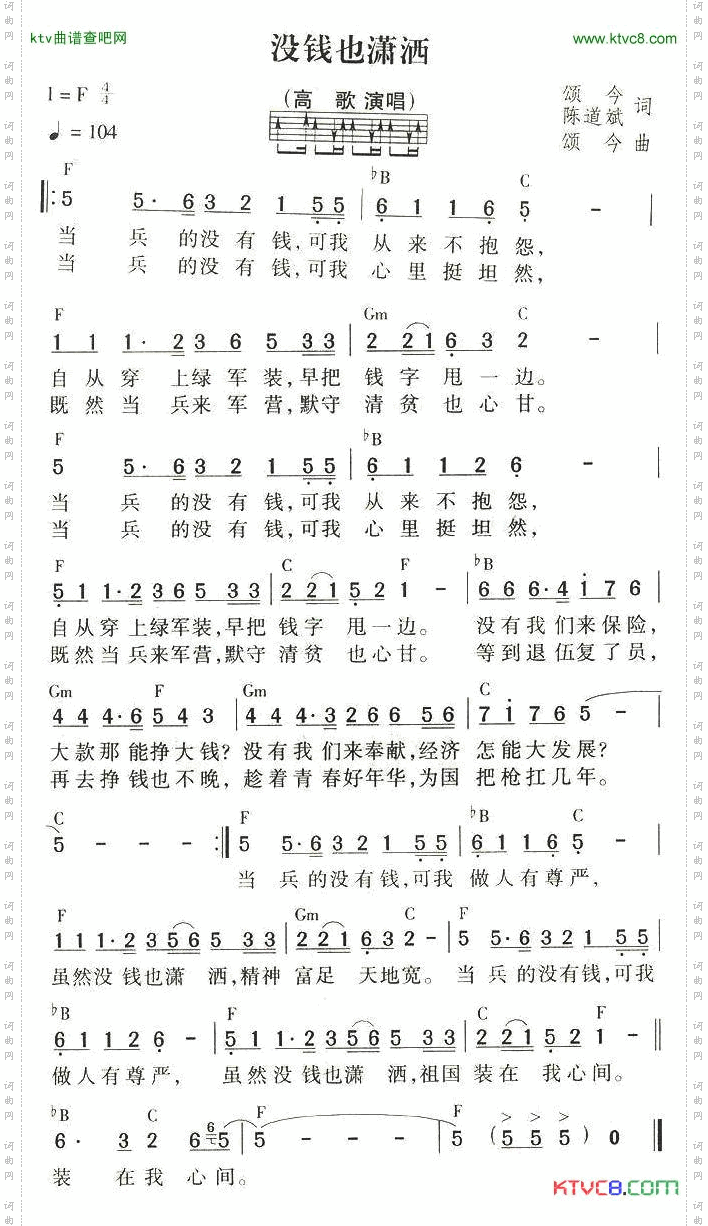 ktv曲谱查吧网
www.ktvc8.com
没钱也潇洒
1=F 4/4
(高 歌 演唱)
♩=104
颂 今
陈道斌 词
颂 今 曲
F bB C
5 5· 6 3 2 1 5 5 6 1 1 6 5 -
当 兵 的没有 钱,可我 从 来 不 抱怨,
当 兵 的没有 钱,可我 心 里 挺 坦 然,
F Gm C
1 1 1· 2 3 6 5 3 3 2 2 1 6 3 2 -
自 从 穿 上绿 军 装,早把 钱 字 甩 一 边。
既 然 当 兵来 军 营,默守 清 贫 也 心 甘。
F bB
5 5· 6 3 2 1 5 5 6 1 1 2 6 -
当 兵 的没有 钱,可我 从 来 不 抱怨,
当 兵 的没有 钱,可我 心 里 挺 坦 然,
F C F bB
5 1 1· 2 3 6 5 3 3 2 2 1 5 2 1 - 6 6 6· 4 1 7 6
自 从 穿 上绿军装,早把 钱字 甩一边。 没有我 们来保险,
既 然 当 兵来军营,默守 清贫 也心甘。 等到退 伍复了员,
Gm F Gm C
4 4 4· 6 5 4 3 4 4 4· 3 2 6 6 5 6 7 1 7 6 5 -
大款那 能挣大钱? 没有我 们来奉献,经济 怎能大发展?
再去挣 钱也不晚, 趁着青 春好年华,为国 把枪扛几年。
C F bB C
5 - - - 5 5· 6 3 2 1 5 5 6 1 1 6 5 -
当 兵 的没有钱,可我 做人有尊严,
F Gm C F
1 1 1· 2 3 5 6 5 3 3 2 2 1 6 3 2 - 5 5· 6 3 2 1 5 5
虽然没 钱也潇 洒,精神 富足 天地宽。 当 兵的没有钱,可我
bB F C F
6 1 1 2 6 - 5 1 1· 2 3 5 6 5 3 3 2 2 1 5 2 1 -
做人有尊严, 虽然没 钱也潇 洒,祖国 装在 我心间。
bB C F F
6· 3 2 6 5 5 - - - 5 (5 5 5) 0
装 在我 心间。
KTVC8.COM
词曲网